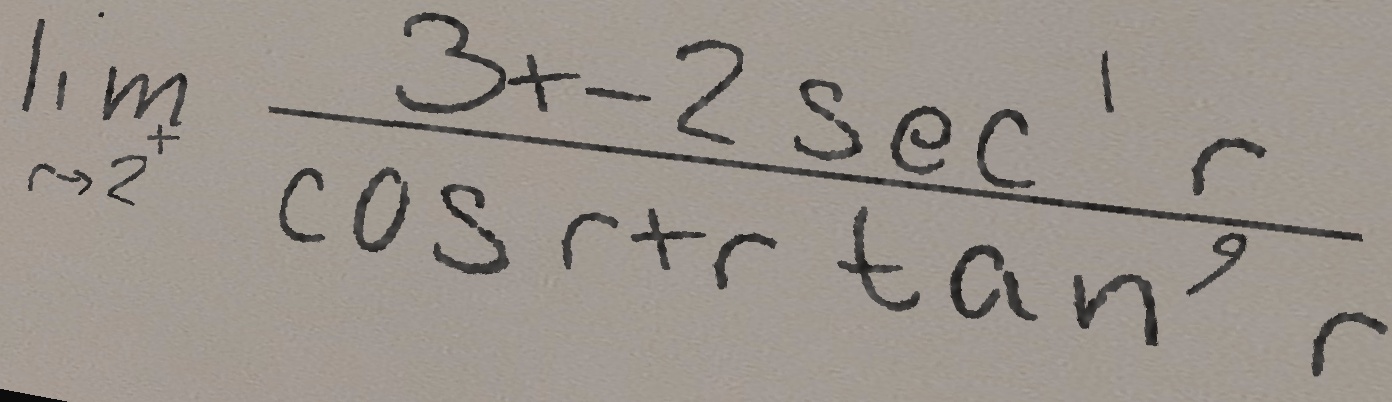 \lim_{r \to 2^+} \frac{3 + -2 \sec^1 r}{\cos r + r \tan^9 r}